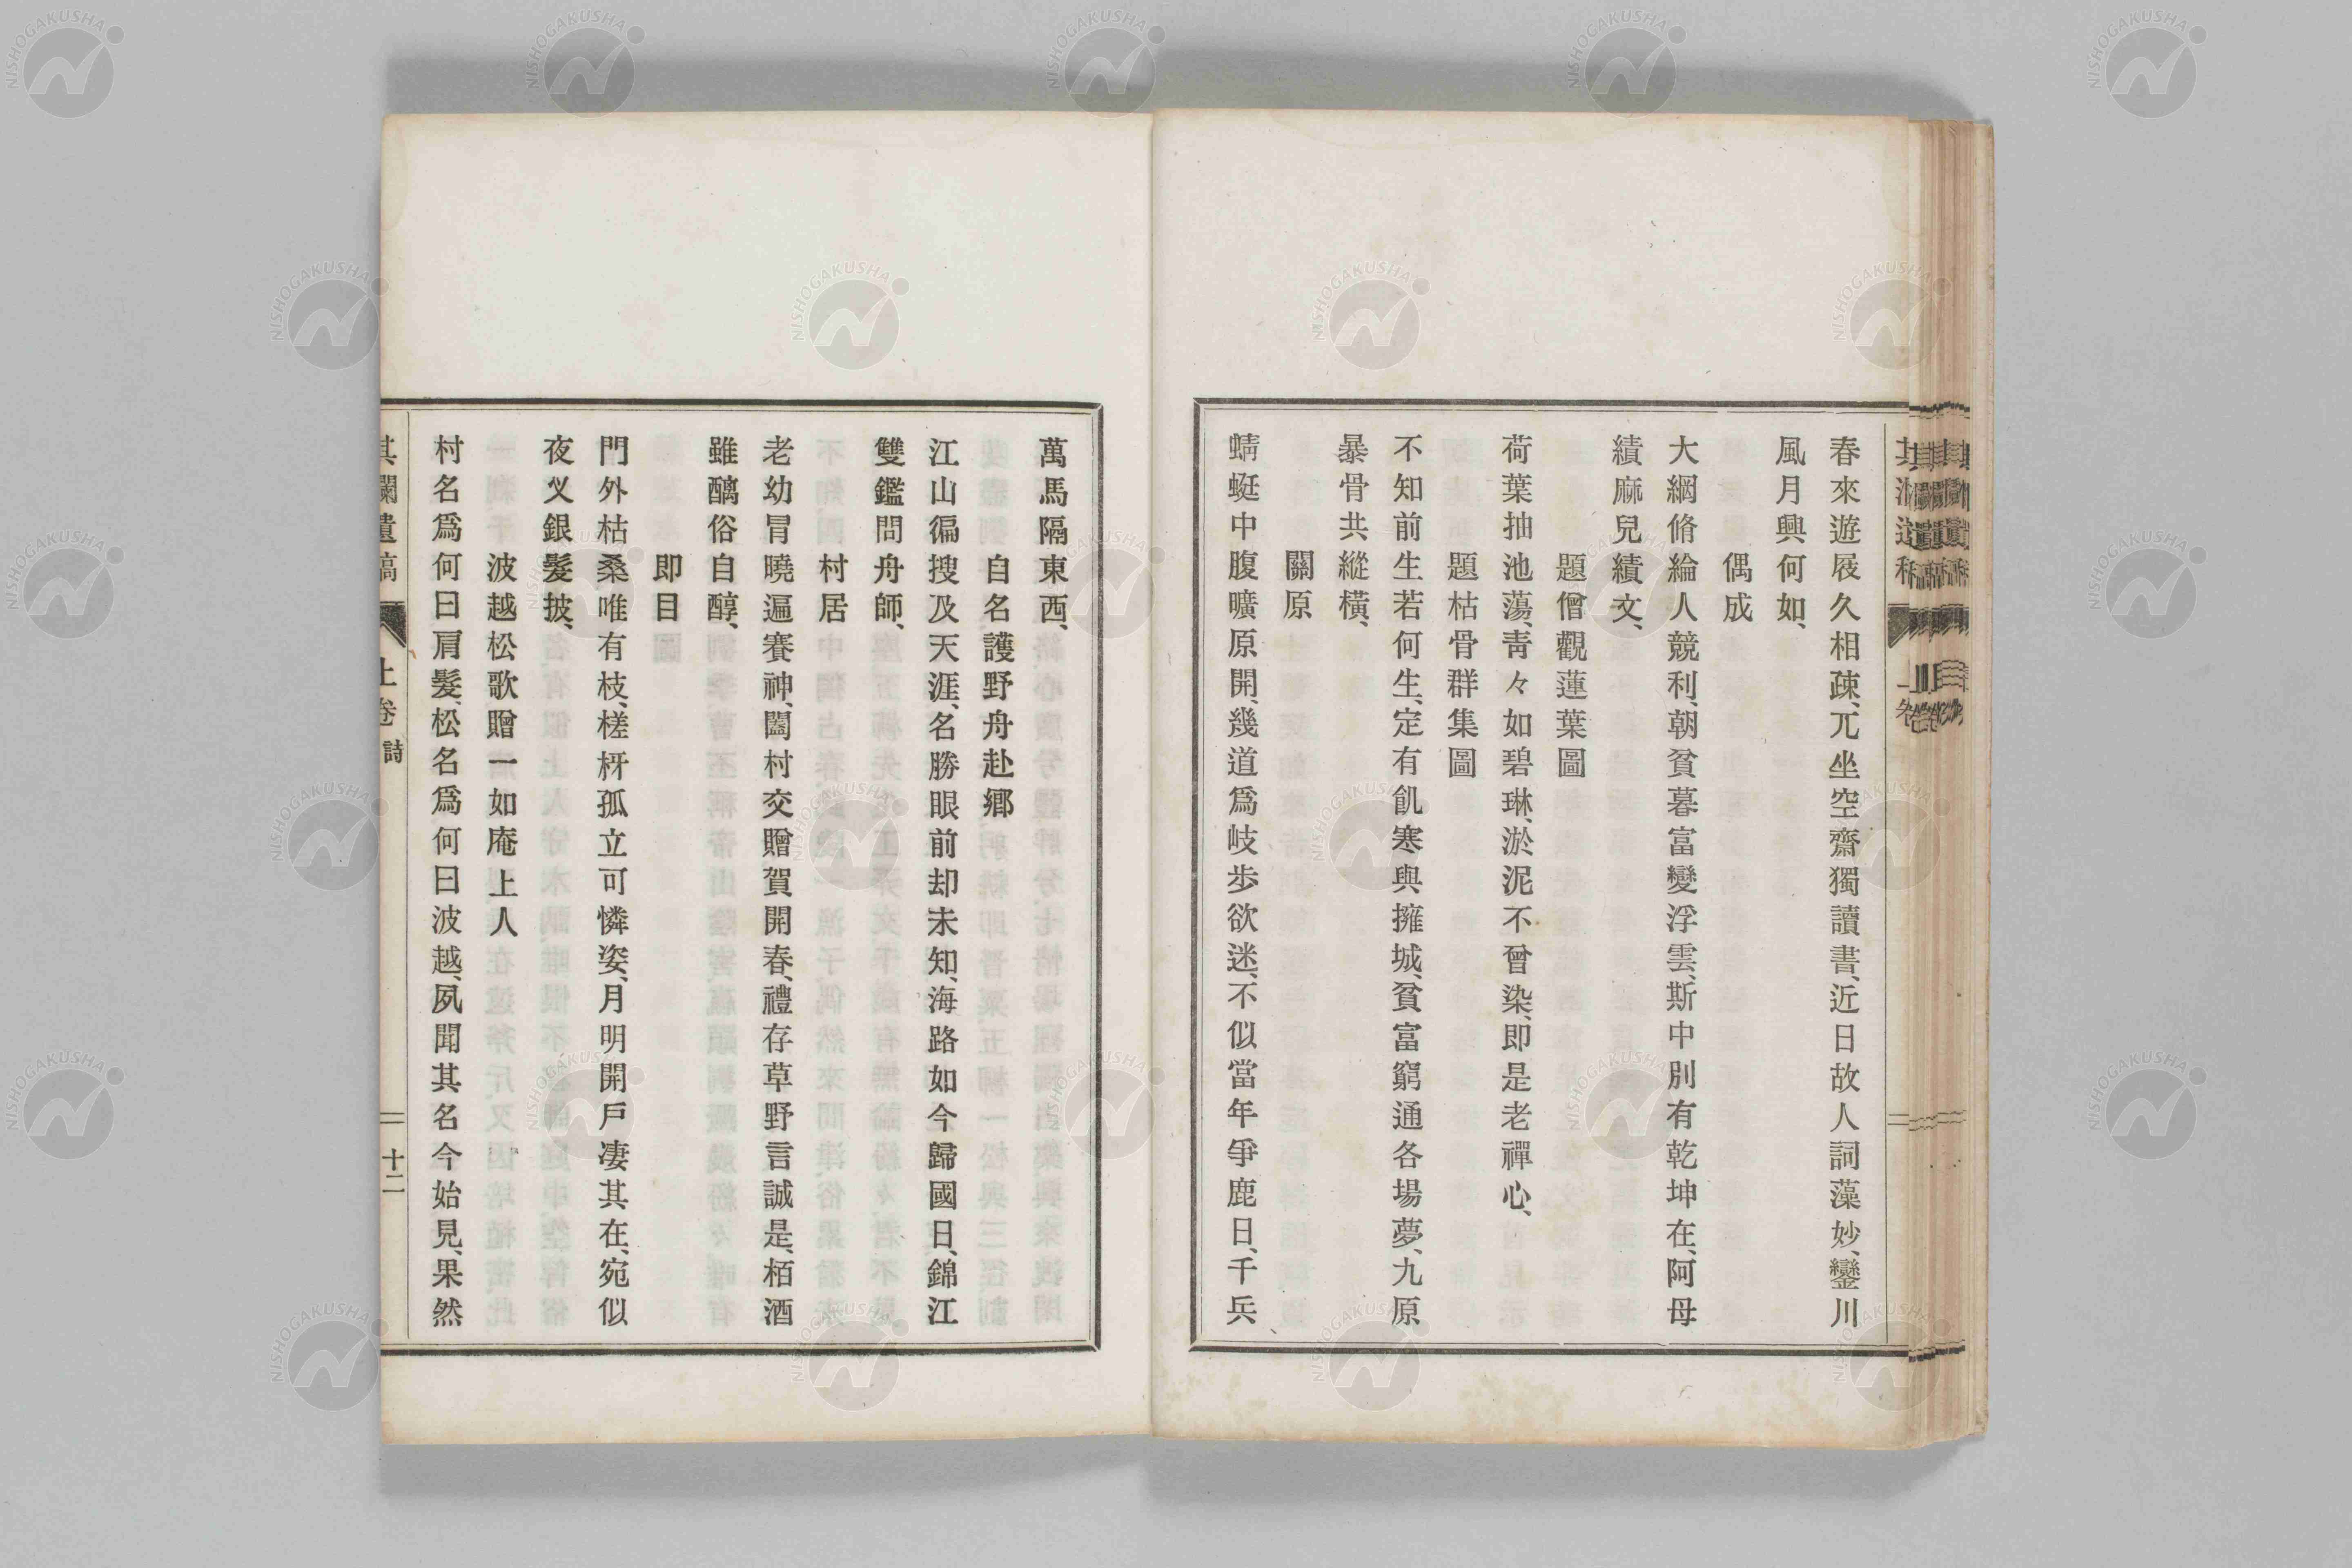 春來遊屐久相疎、兀坐空齋獨讀書、近日故人詞藻妙、鑾川
風月興何如、
偶成
大綱脩綸人競利、朝貧暮富變浮雲、斯中別有乾坤在、阿母
績麻兒績文、
題僧觀蓮葉圖
荷葉抽池蕩、靑々如碧琳、淤泥不曾染、卽是老禪心、
題枯骨群集圖
不知前生若何生、定有飢寒與擁城、貧富窮通各場夢、九原
暴骨共縱橫、
關原
蜻蜓中腹曠原開、幾道爲岐歩欲迷、不似當年爭鹿日、千兵
萬馬隔東西、
自名護野舟赴鄉
江山徧搜及天涯、名勝眼前却未知、海路如今歸國日、錦江
雙鑑問舟師、
村居
老幼冒曉遍賽神、闔村交贈賀開春、禮存草野言誠是、栢酒
雖醨俗自醇、
卽目
門外枯桑唯有枝、槎枒孤立可憐姿、月明開戶凄其在、宛似
夜叉銀髮披、
波越松歌贈一如庵上人
村名爲何曰肩髮、松名爲何曰波越、夙聞其名今始見、果然
其瀾遺稿 上卷 詩 十二
NISHOGAKUSHA